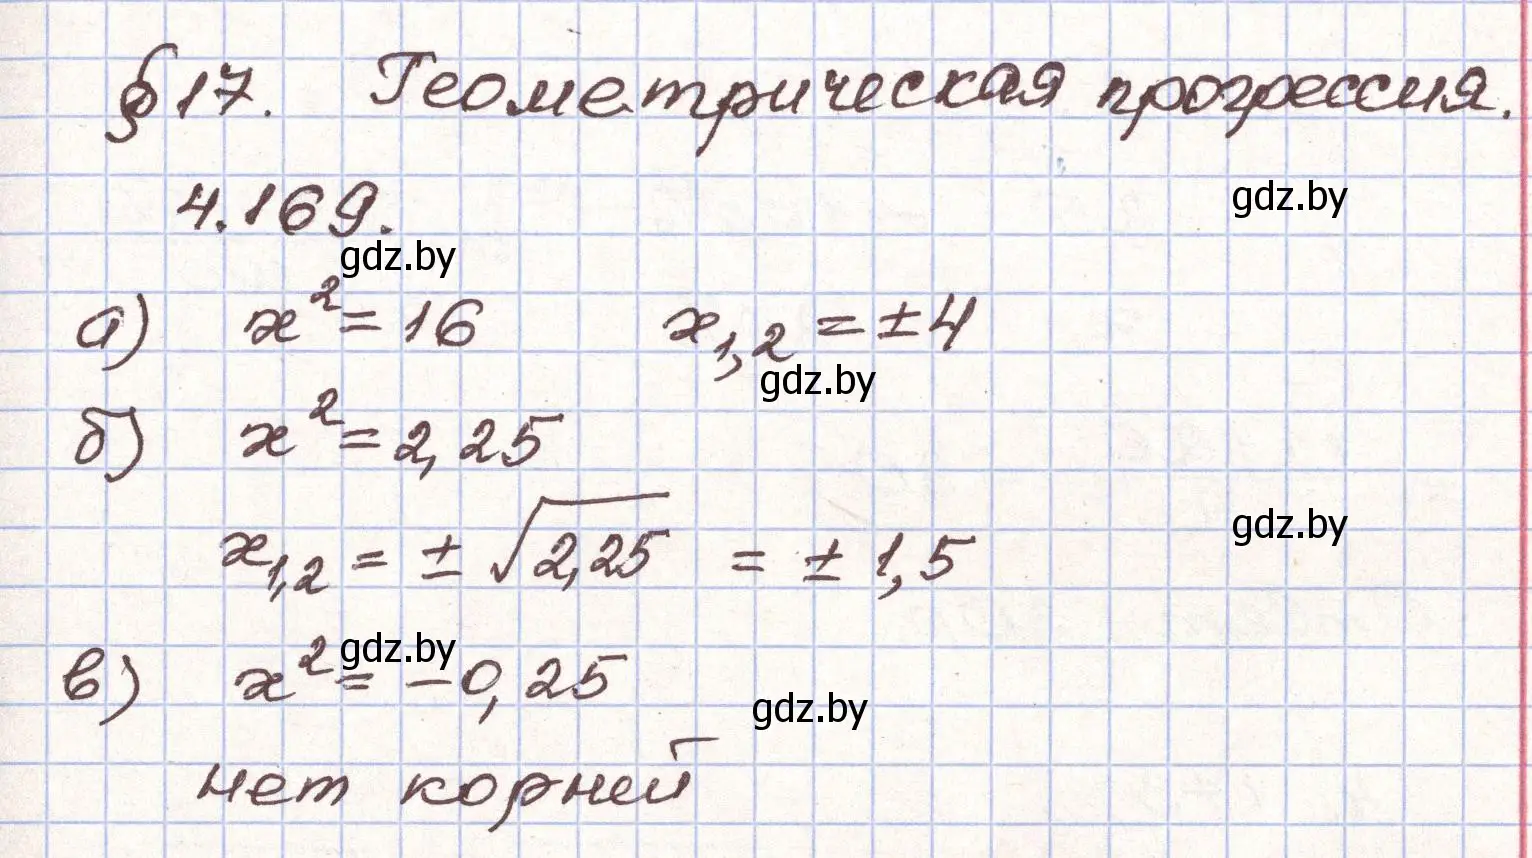 §17. Геометрическая прогрессия.
4.169.
gdz.by
gdz.by
а) x² = 16 x₁,₂ = ±4
gdz.by
б) x² = 2,25
x₁,₂ = ± √2,25 = ± 1,5
gdz.by
gdz.by
в) x² = −0,25
gdz.by
нет корней